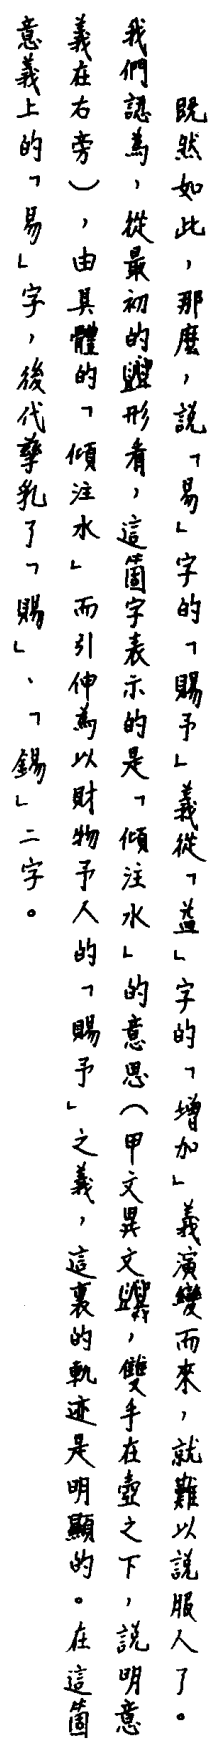 既然如此，那麼，說「易」字的「賜予」義從「益」字的「增加」義演變而來，就難以說服人了。
我們認為，從最初的形看，這箇字表示的是「傾注水」的意思（甲文異文，雙手在壺之下，說明意
義在右旁），由具體的「傾注水」而引伸為以財物予人的「賜予」之義，這裏的軌迹是明顯的。在這箇
意義上的「易」字，後代孳乳了「賜」、「錫」二字。